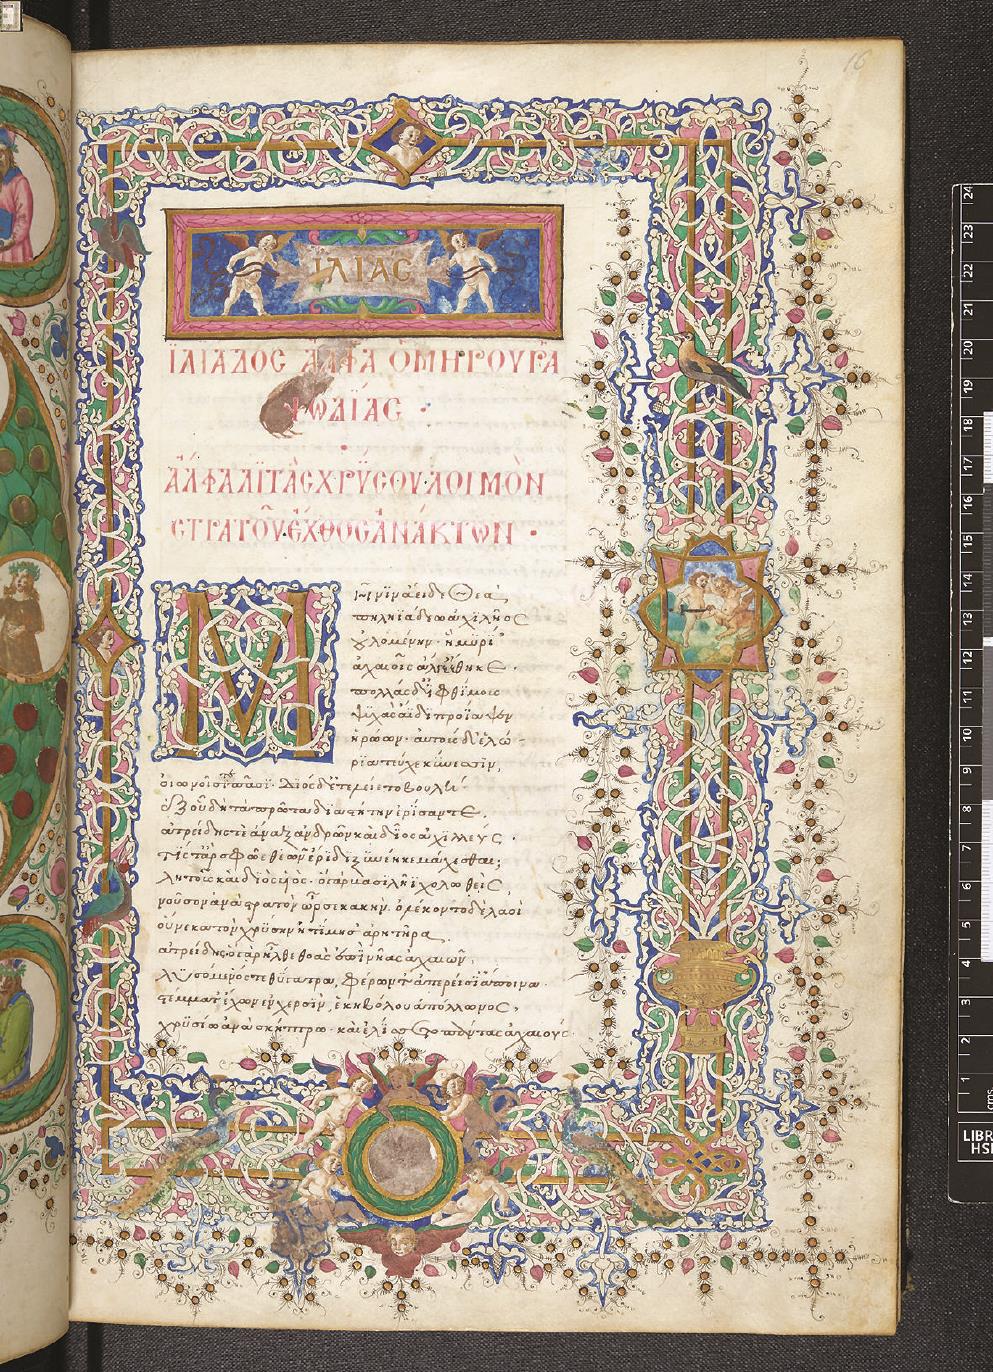 16
ΙΛΙΑϹ
ἸΛΙΑΔΟϹ ἌΛΦΑ ὉΜΗΡΟΥ ῬΑ
ΨΩΔΙΑϹ ·
ἌΛΦΑ ΛΙΤᾺϹ ΧΡΥϹΟΥ· ΛΟΙΜῸΝ
ϹΤΡΑΤΟΥ͂· ἜΧΘΟϹ ἈΝΆΚΤΩΝ ·
Μῆνιν ἄειδε Θεὰ
πηληϊάδεω ἀχιλῆος
οὐλομένην· ἣ μυρί
ἀχαιοῖς ἄλγε ἔθηκε·
πολλὰς δ' ἰφθίμους
ψυχὰς ἄϊδι προΐαψεν
ἡρώων· αὐτοὺς δὲ ἑλώ
ρια τεῦχε κύνεσσιν,
οἰωνοῖσί τε πᾶσι· Διὸς δ' ἐτελείετο βουλή·
ἐξ οὗ δὴ τὰ πρῶτα διαστήτην ἐρίσαντε,
ἀτρείδης τε ἄναξ ἀνδρῶν καὶ δῖος ἀχιλλεύς·
τίς τ' ἄρ σφῶε θεῶν ἔριδι ξυνέηκε μάχεσθαι;
λητοῦς καὶ διὸς υἱός· ὁ γὰρ βασιλῆϊ χολωθείς,
νοῦσον ἀνὰ στρατὸν ὦρσε κακήν. ὀλέκοντο δὲ λαοί
οὕνεκα τὸν χρύσην ἠτίμησ' ἀρητῆρα
ἀτρείδης· ὁ γὰρ ἦλθε θοὰς ἐπὶ νῆας ἀχαιῶν,
λυσόμενός τε θύγατρα, φέρων τ' ἀπερείσι' ἄποινα·
στέμματ' ἔχων ἐν χερσὶν, ἑκηβόλου ἀπόλλωνος,
χρυσέῳ ἀνὰ σκήπτρῳ· καὶ ἐλίσσετο πάντας ἀχαιούς·
24
23
22
21
20
19
18
17
16
15
14
13
12
11
10
9
8
7
6
5
4
3
2
1
cms
LIBR
HS